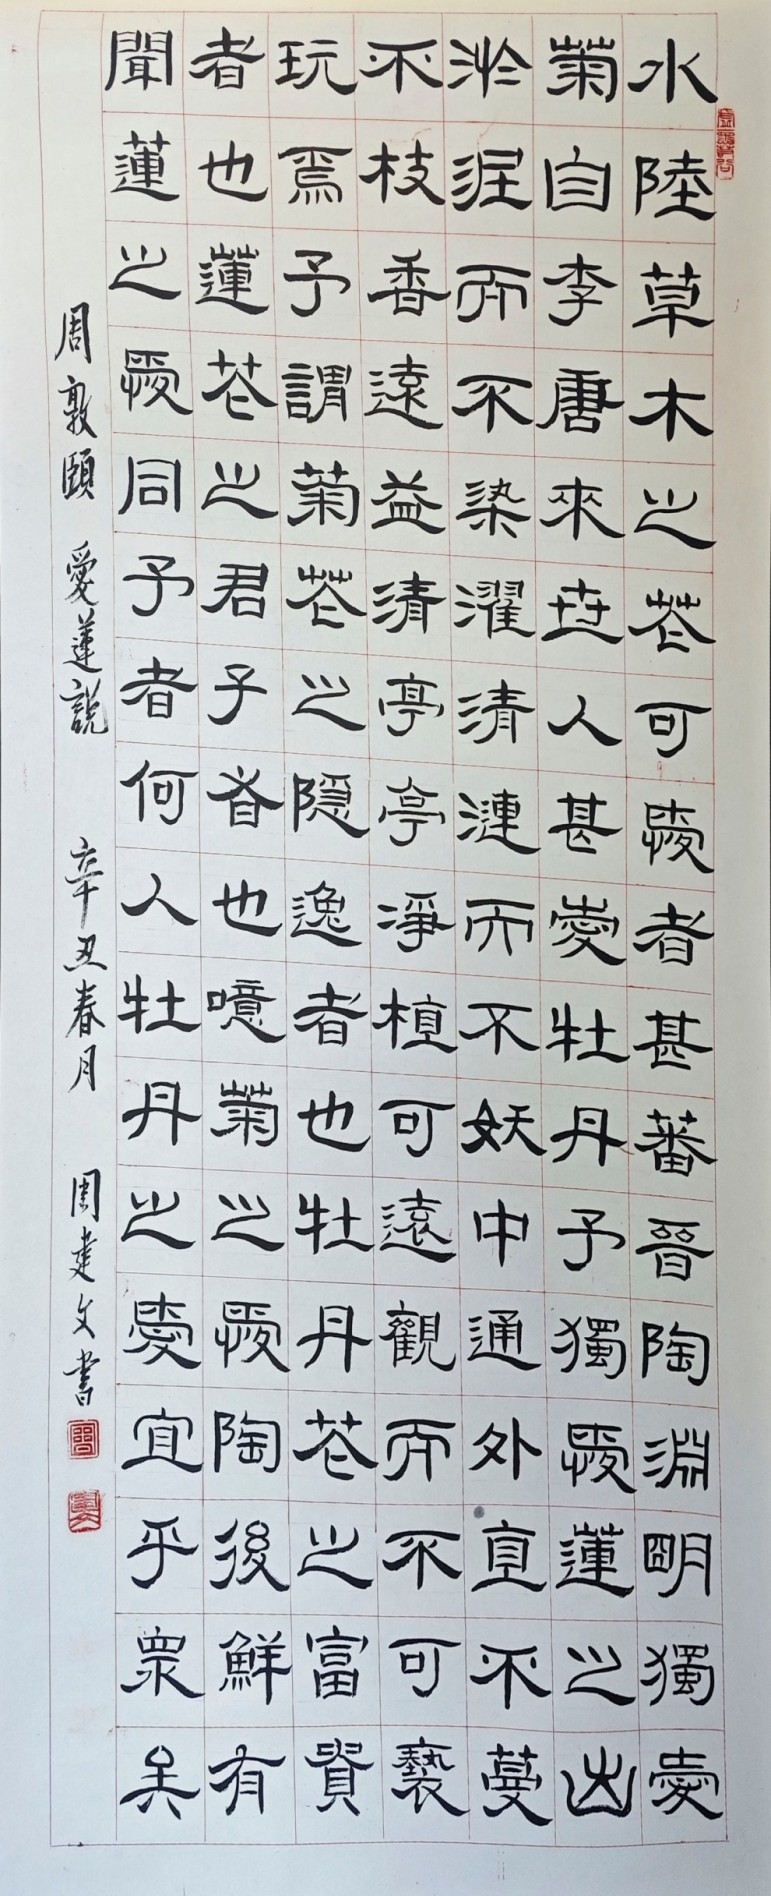 水陸草木之花可愛者甚蕃晉陶淵明獨愛
菊自李唐來世人甚愛牡丹予獨愛蓮之出
淤泥而不染濯清漣而不妖中通外直不蔓
不枝香遠益清亭亭淨植可遠觀而不可褻
玩焉予謂菊花之隱逸者也牡丹花之富貴
者也蓮花之君子者也噫菊之愛陶後鮮有
聞蓮之愛同予者何人牡丹之愛宜乎眾矣
周敦頤 愛蓮說 辛丑春月 周建文書